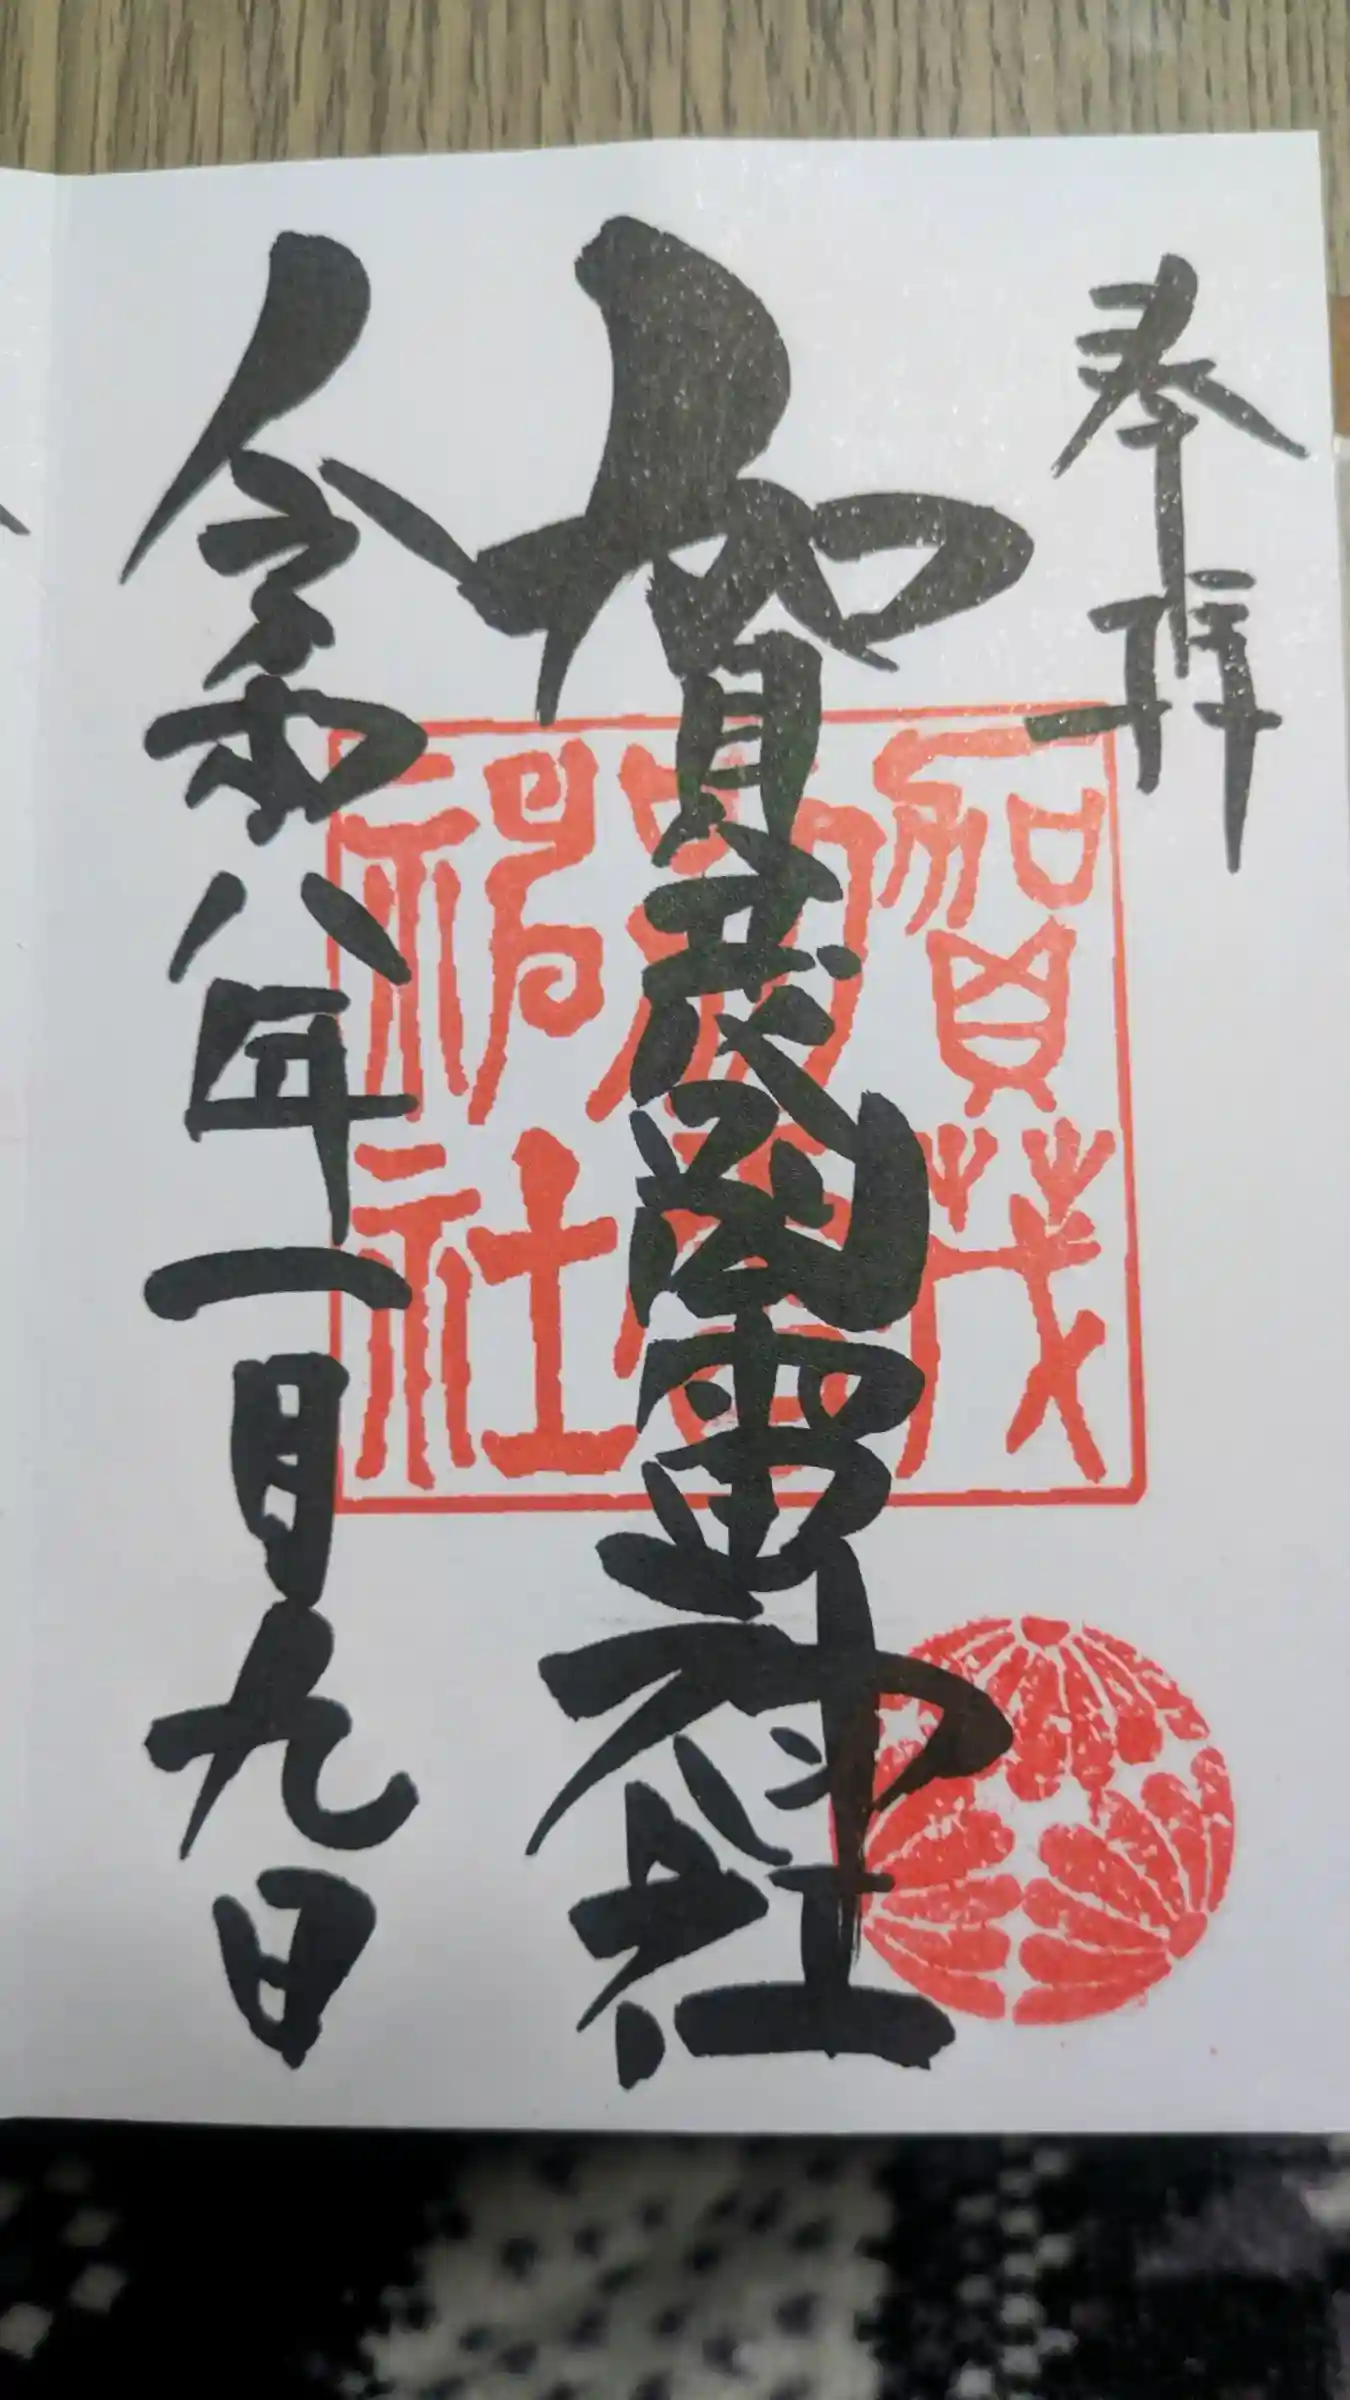 奉拝
賀茂別雷神社
令和八年一月九日
賀茂
別雷
神社